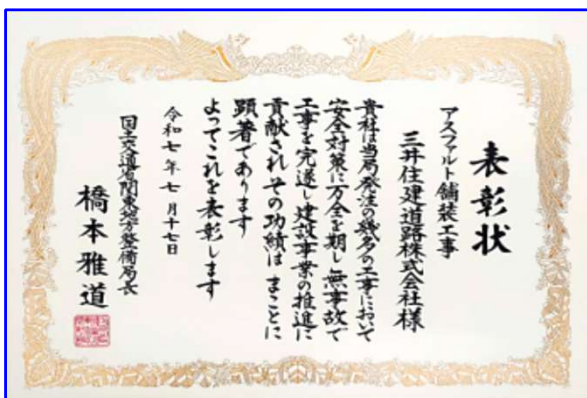 表彰状
アスファルト舗装工事
三井住建道路株式会社様
貴社は当局発注の幾多の工事において
安全対策に万全を期し無事故で
工事を完遂し建設事業の推進に
貢献されその功績はまことに
顕著であります
よってこれを表彰します
令和七年七月十七日
国土交通省関東地方整備局長
橋本雅道